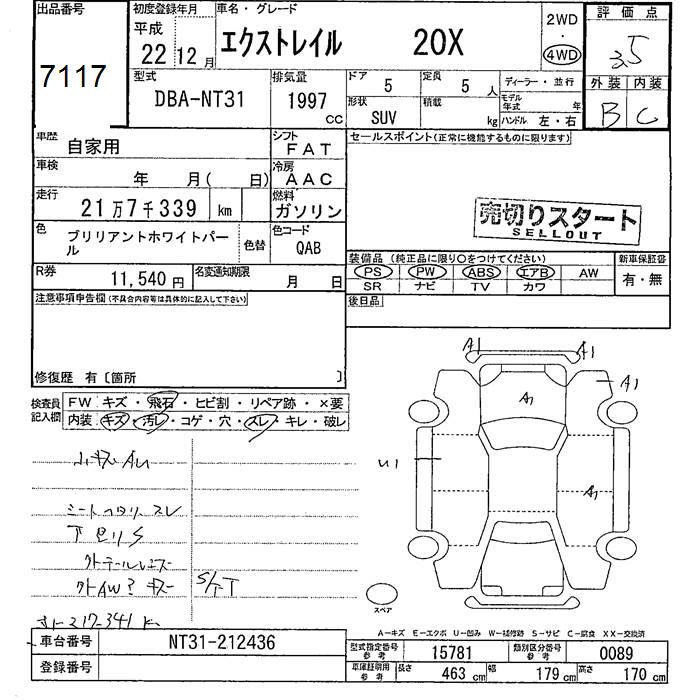 出品番号
7117
初度登録年月
平成
22年12月
車名・グレード
エクストレイル 20X
2WD
・
4WD
評価点
3.5
外装 内装
B C
型式
DBA-NT31
排気量
1997
CC
ドア 5
定員 5 人
ディーラー・並行
形状 SUV
積載 kg
モデル年式 年
ハンドル 左・右
車歴 自家用
シフト FAT
セールスポイント(正常に機能するものに限ります)
車検 年 月( 日)
冷房 AAC
走行 21万7千339 km
燃料 ガソリン
色 ブリリアントホワイトパール
色替
色コード QAB
売切りスタート
SELLOUT
R券 11,540円
名変通知期限 月 日
装備品 (純正品に限り○をつけてください)
新車保証書
PS PW ABS エアB AW
SR ナビ TV カワ
有・無
注意事項申告欄(不具合内容等は具体的に記入して下さい)
後日品
修復歴 有〔箇所 〕
検査員記入欄
FW キズ・飛石・ヒビ割・リペア跡・×要
内装 キズ・汚レ・コゲ・穴・スレ・キレ・破レ
小キズAU
シートヘタリ、スレ
S/TT
A1
A1
A1
A1
U1
A1
スペア
A-キズ E-エクボ U-凹み W-補修跡 S-サビ C-腐食 XX-交換済
車台番号 NT31-212436
登録番号
型式指定番号 参考 15781
類別区分番号 参考 0089
車庫証明用 参考 長さ 463 cm 幅 179 cm 高さ 170 cm